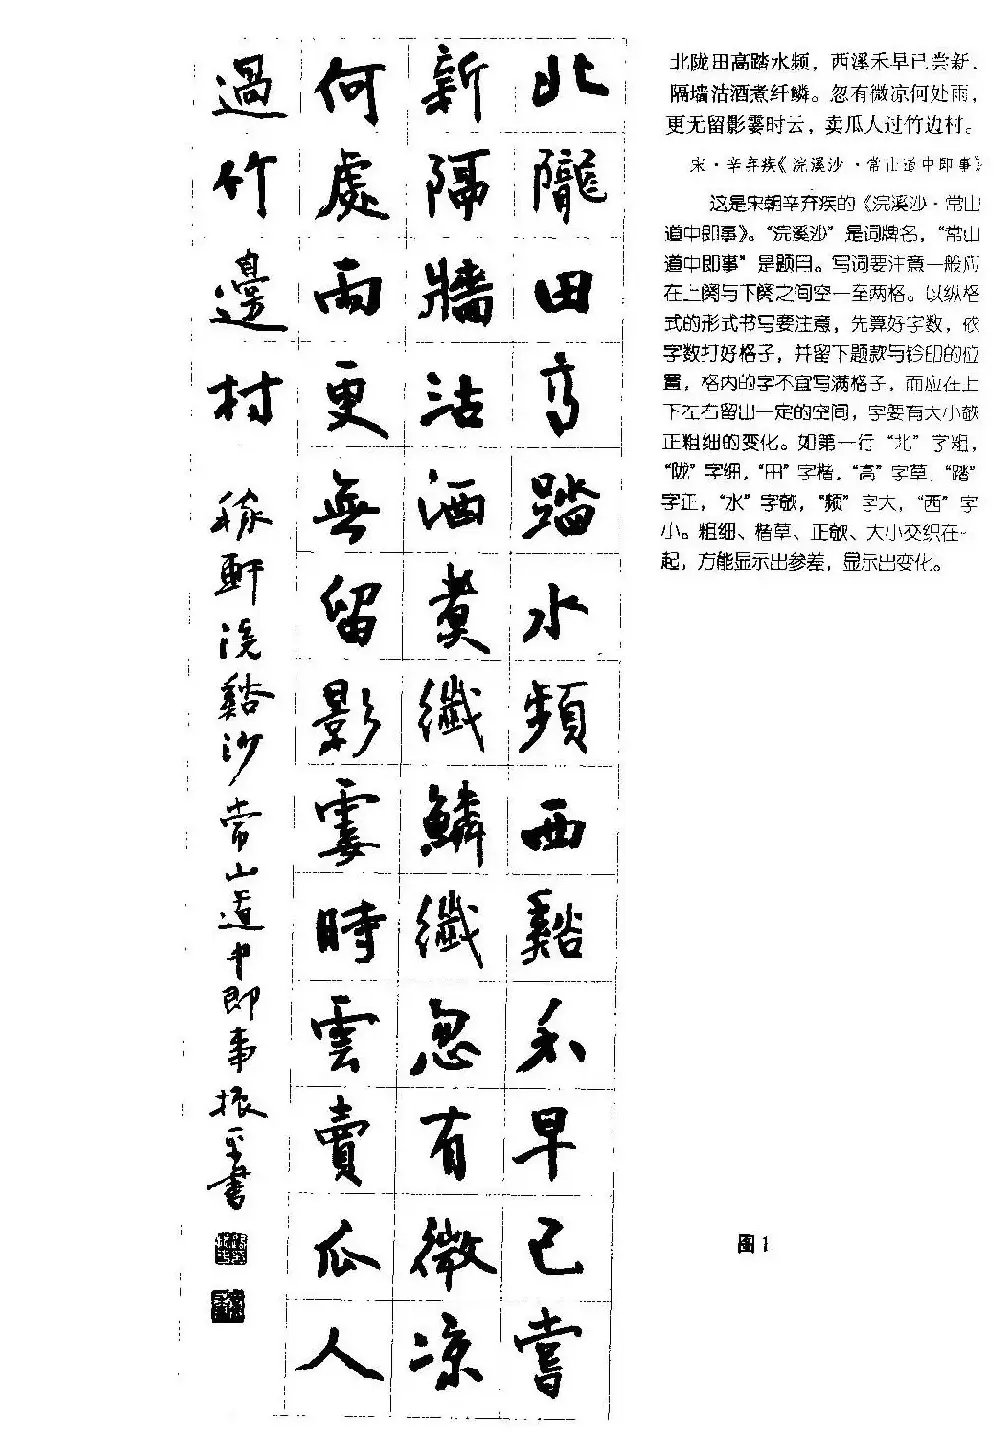 北隴田高踏水頻西谿禾早已嘗
新隔牆沽酒煮纖鱗纖忽有微涼
何處雨更無留影霎時雲賣瓜人
過竹邊村
稼軒浣谿沙常山道中即事振平書
北陇田高踏水频，西溪禾早已尝新，
隔墙沽酒煮纤鳞。忽有微凉何处雨，
更无留影霎时云，卖瓜人过竹边村。
宋·辛弃疾《浣溪沙·常山道中即事》
这是宋朝辛弃疾的《浣溪沙·常山
道中即事》。“浣溪沙”是词牌名，“常山
道中即事”是题目。写词要注意一般应
在上阕与下阕之间空一至两格。以纵格
式的形式书写要注意，先算好字数，依
字数打好格子，并留下题款与钤印的位
置，格内的字不宜写满格子，而应在上
下左右留出一定的空间，字要有大小欹
正粗细的变化。如第一行“北”字粗，
“陇”字细，“田”字楷，“高”字草，“踏”
字正，“水”字欹，“频”字大，“西”字
小。粗细、楷草、正欹、大小交织在一
起，方能显示出参差，显示出变化。
图1